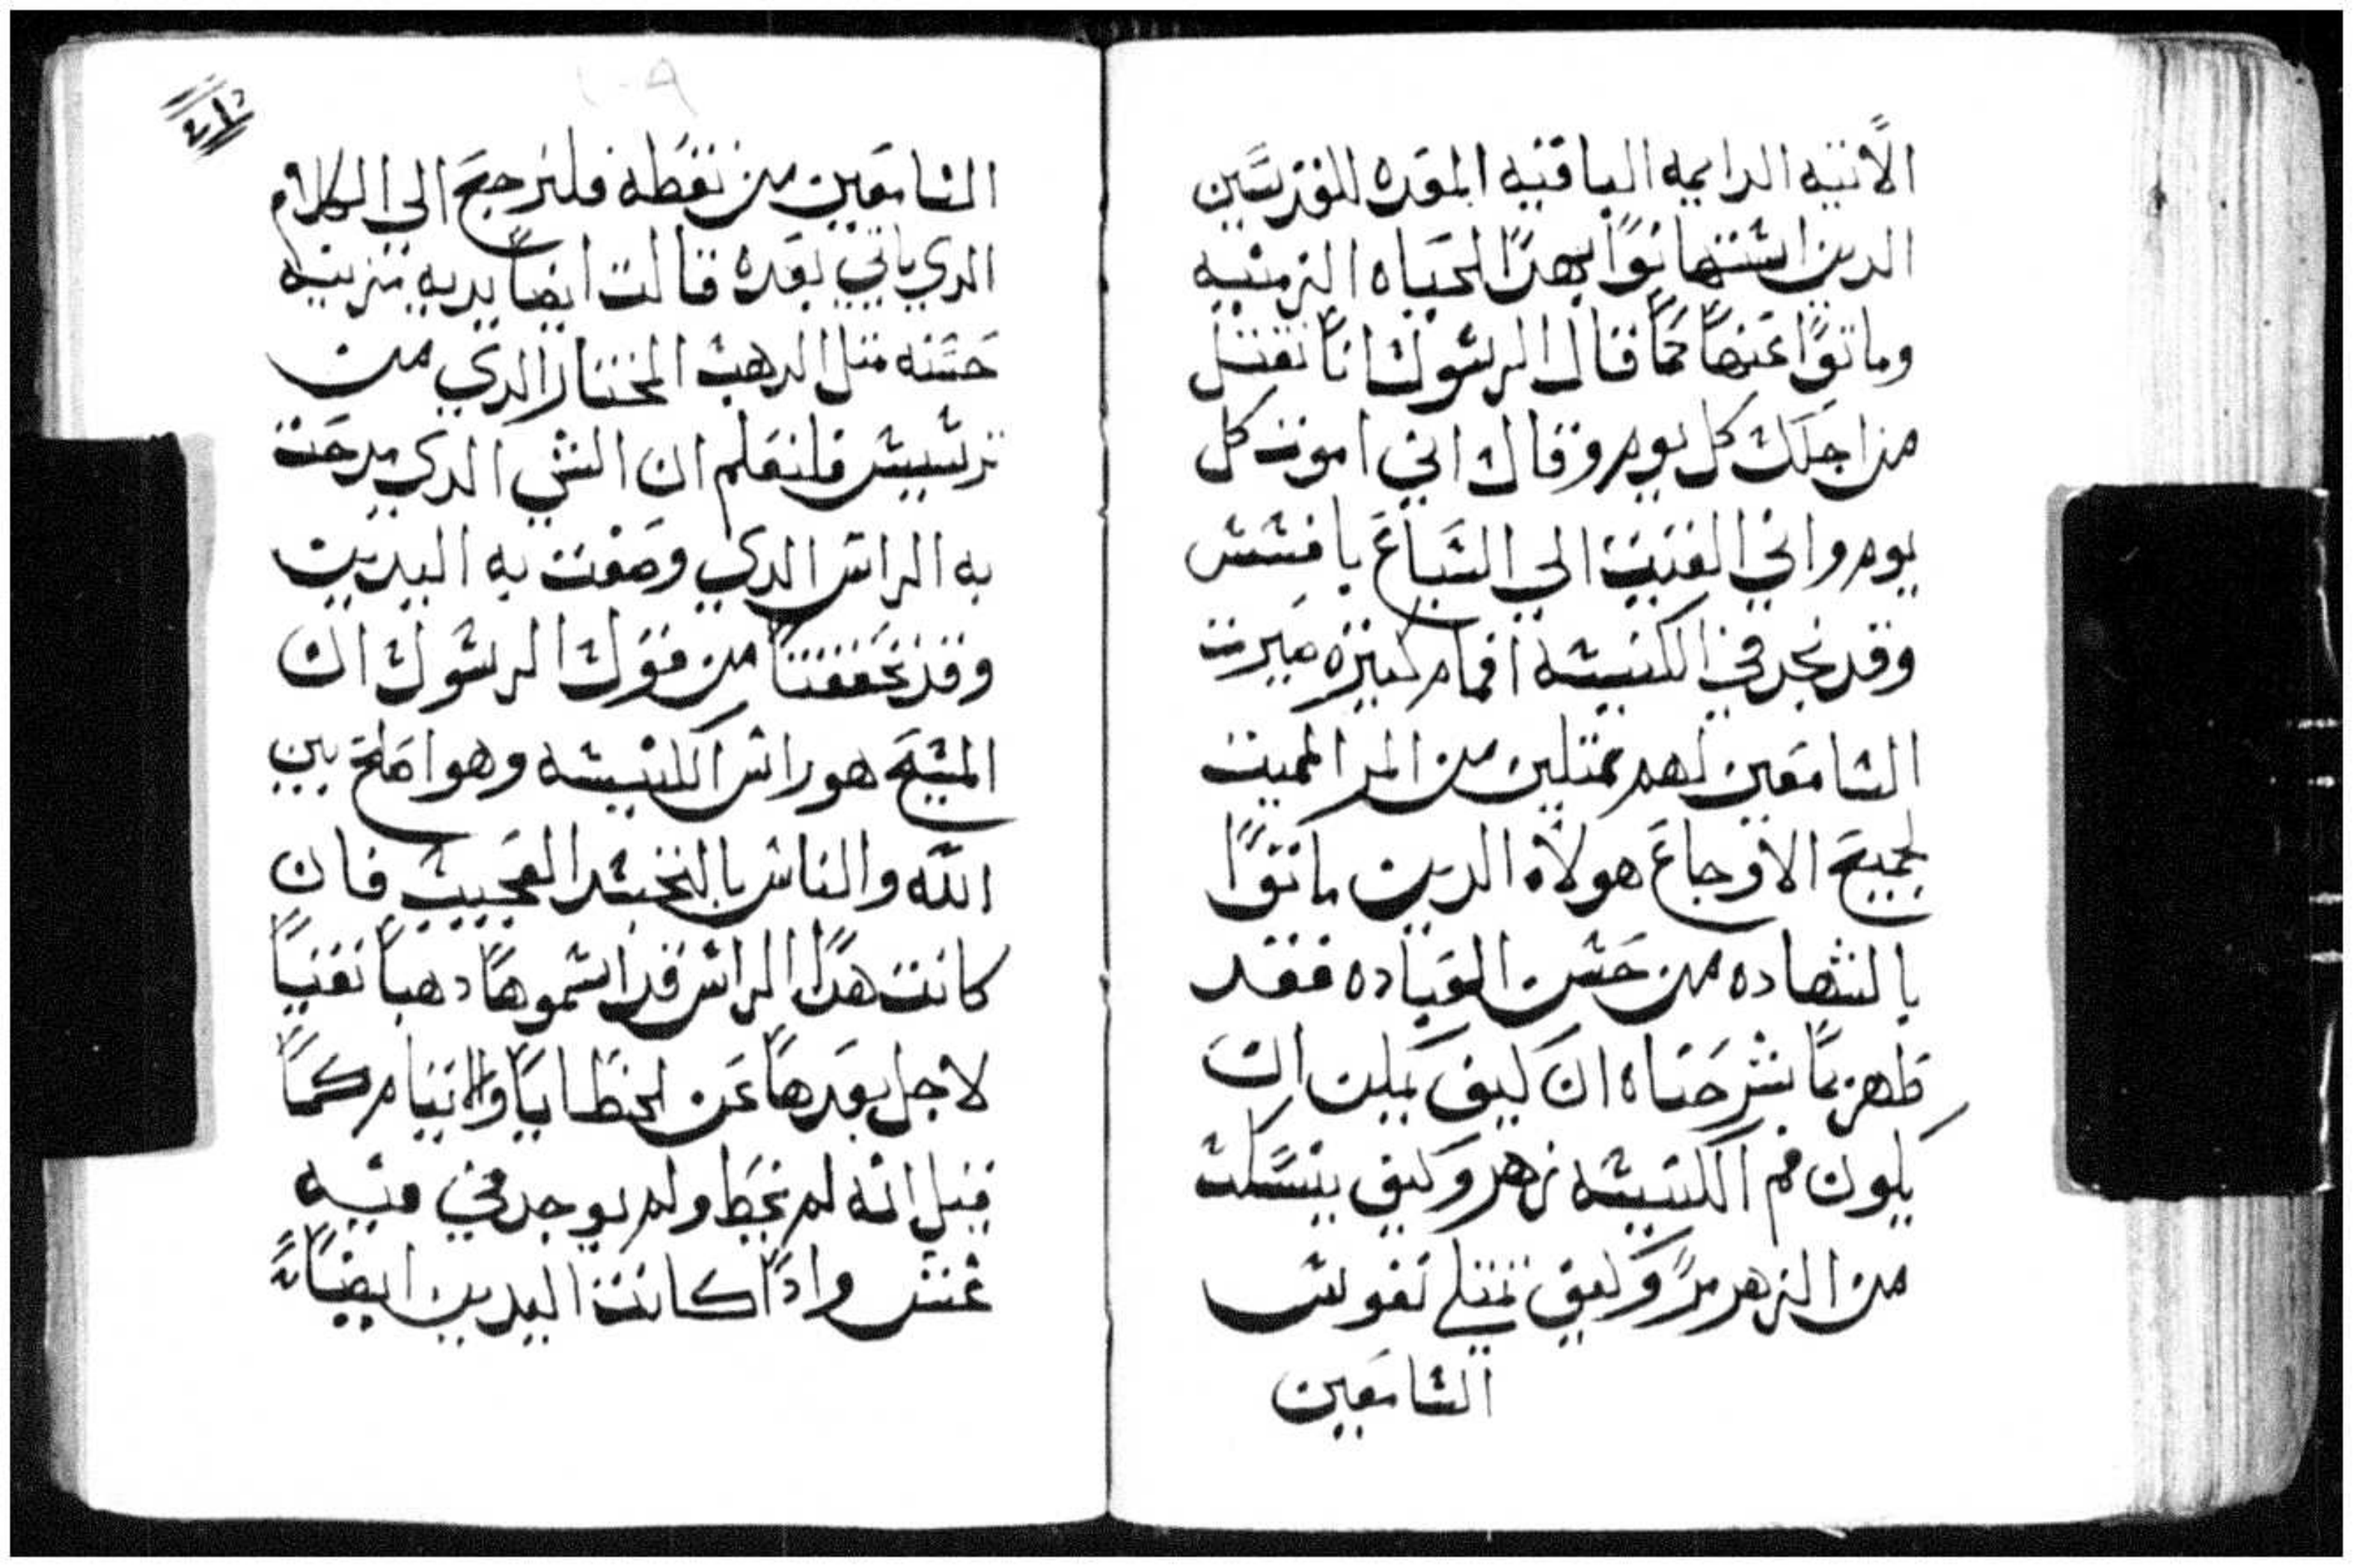 الاتيه الدايمه الباقيه المعده للقديسين
الدين اشتهانوا بهدا الحياه الزمنيه
وماتوا عنها كما قال الرسول اننا نقتل
من اجلك كل يوم وقال اني اموت كل
يوم واني القيت الي السباع بافسس
وقد نجد في الكنيسه افمام كتيره صيرت
السامعين لهم ممتلين من المر المميت
لجميع الاوجاع هولاء الدين ماتوا
بالشهاده من حسن العباده فقد
ظهر بما شرحناه ان كيف يمكن ان
يكون فم الكنيسه زهر وكيف ينسكب
من الزهر مر وكيف تمتلي نفوس
السامعين
السامعين من نقطه فلنرجع الي الكلام
الدي ياتي بعده قالت ايضا يديه متزينيه
حسنه متل الدهب المختار الدي من
ترسيس فلنعلم ان الشي الدي مدحت
به الراس الدي وصفت به اليدين
وقد تحققنا من قول الرسول ان
المسيح هو راس الكنيسه وهو اصلح بين
الله والناس بالتجسد العجيب فان
كانت هدا الراس قد اسموها دهبا نقيا
لاجل بعدها عن الخطايا والاتام كما
قيل انه لم يخط ولم يوجد في فيه
غش وادا كانت اليدين ايضا